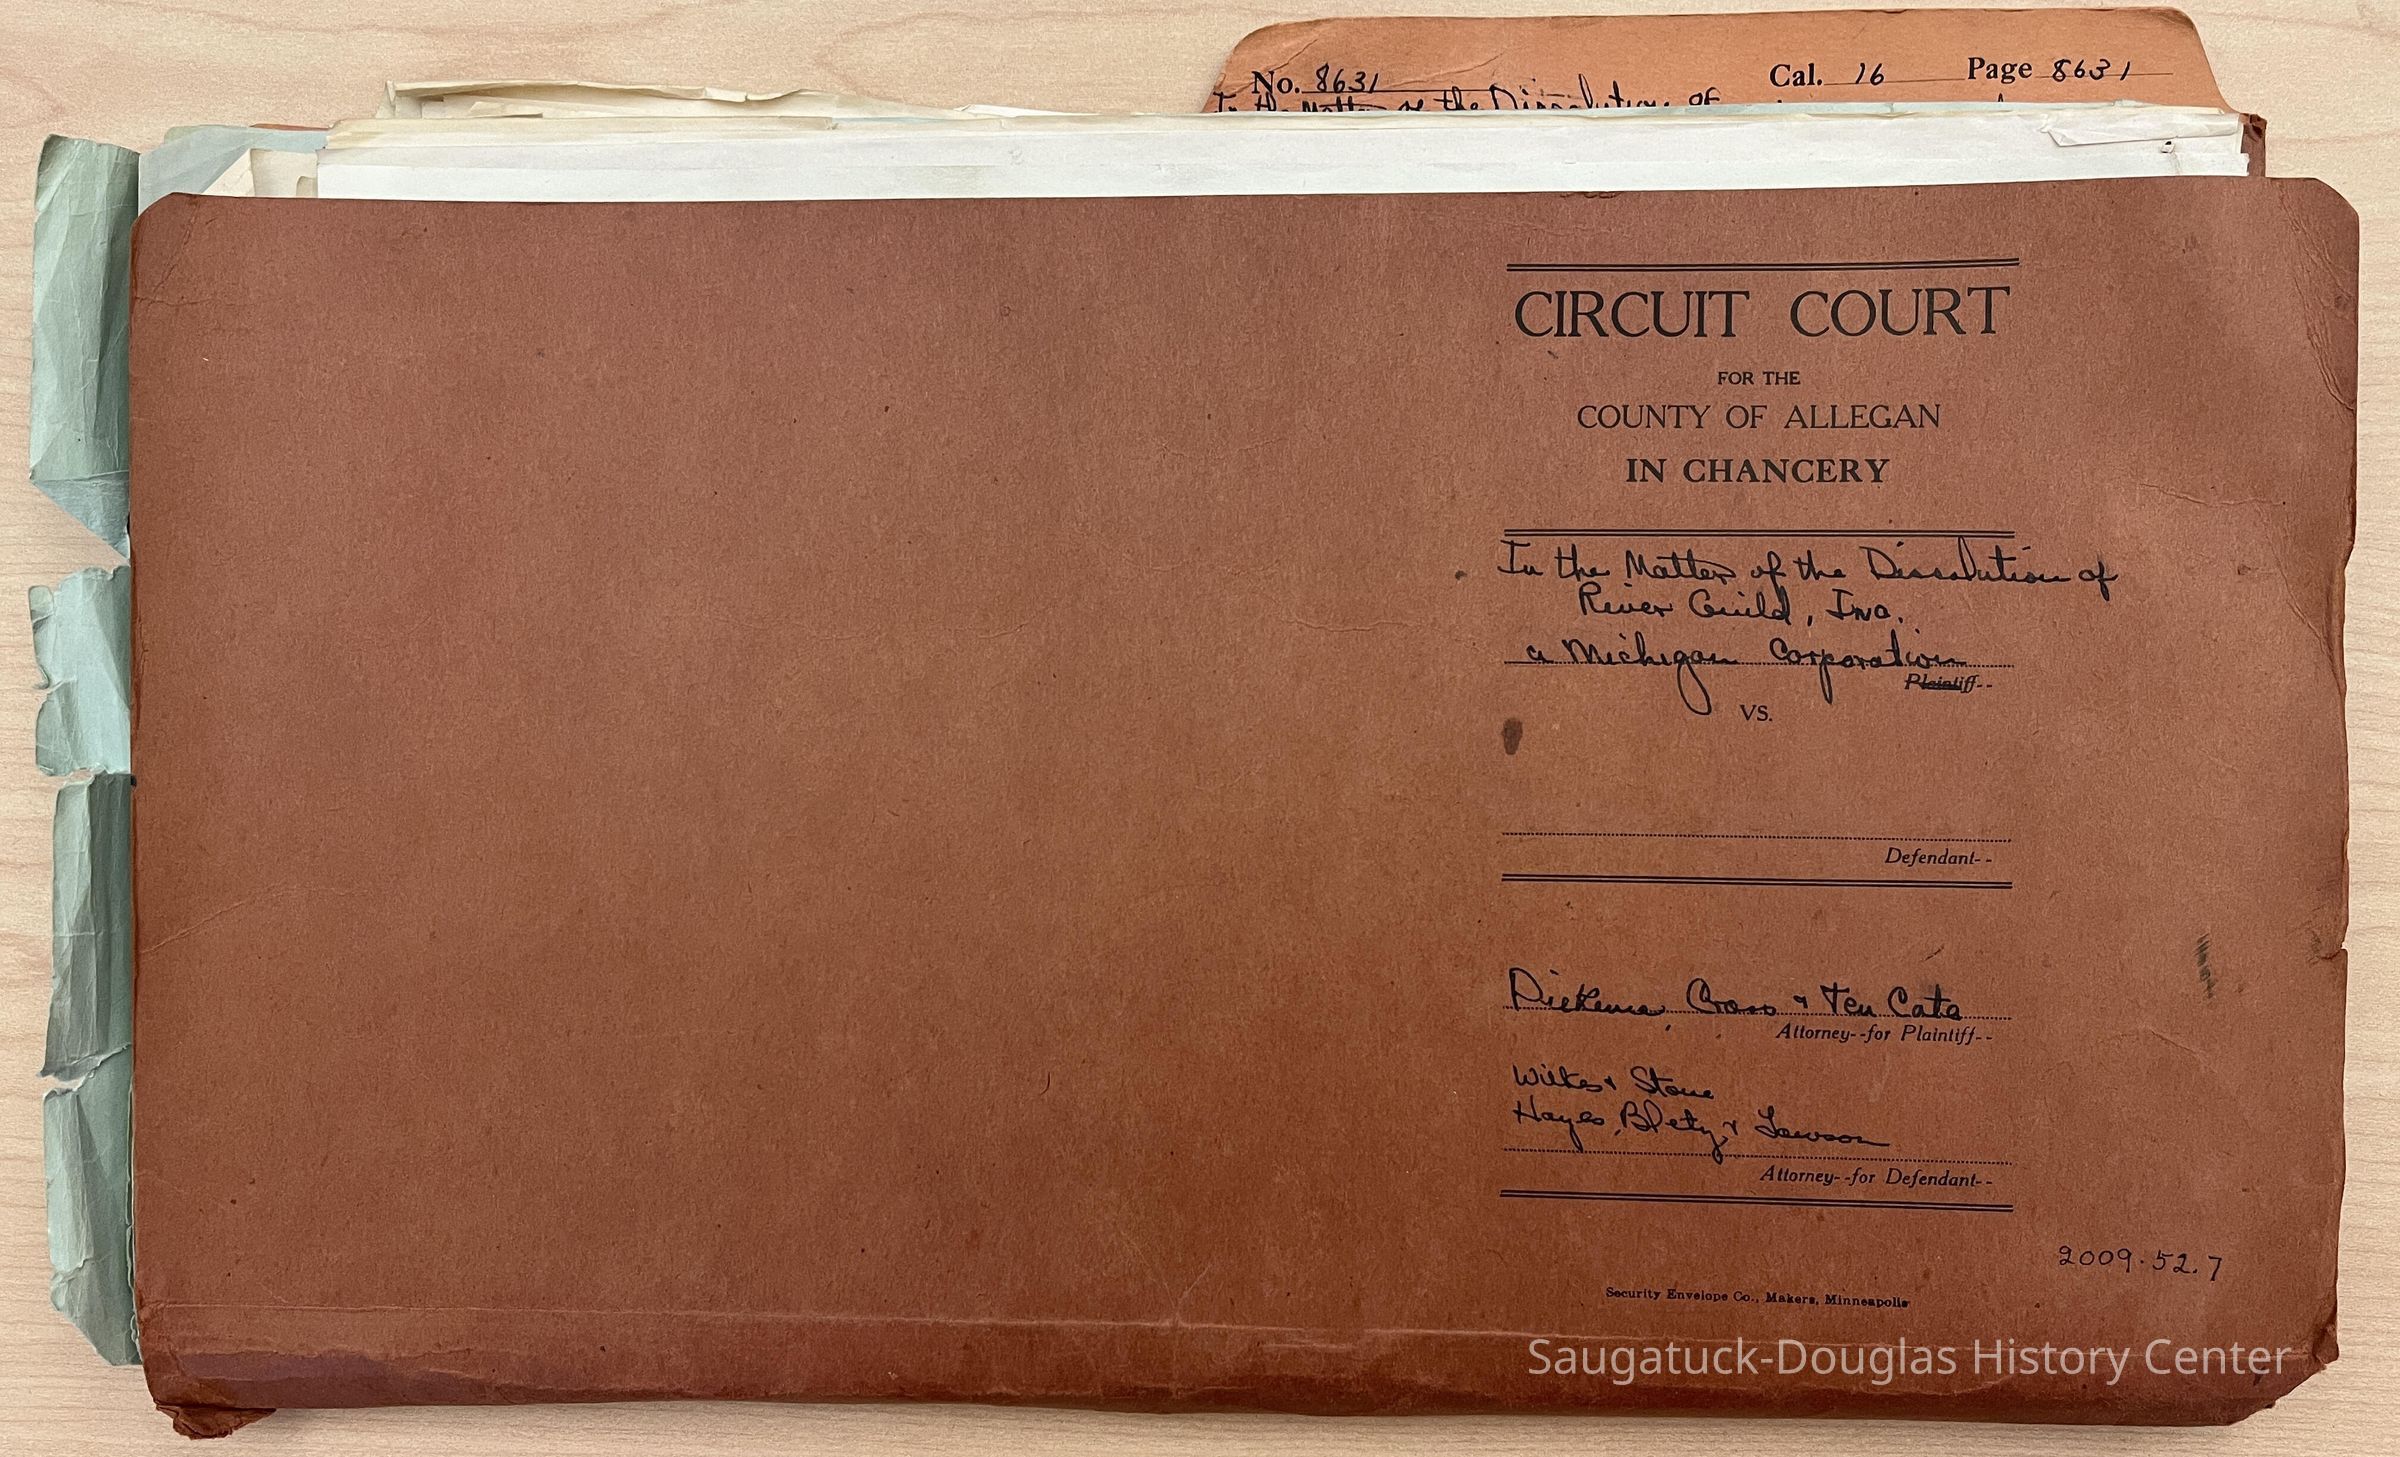 No. 8631 Cal. 16 Page 8631
In the Matter of the Dissolution of
CIRCUIT COURT
FOR THE
COUNTY OF ALLEGAN
IN CHANCERY
In the Matter of the Dissolution of
River Guild, Inc.
a Michigan Corporation
Plaintiff--
VS.
Defendant--
Diekema, Cross & Ten Cate
Attorney--for Plaintiff--
Wilkes & Stone
Hayes, Blety & Lawson
Attorney--for Defendant--
2009.52.7
Security Envelope Co., Makers, Minneapolis
Saugatuck-Douglas History Center